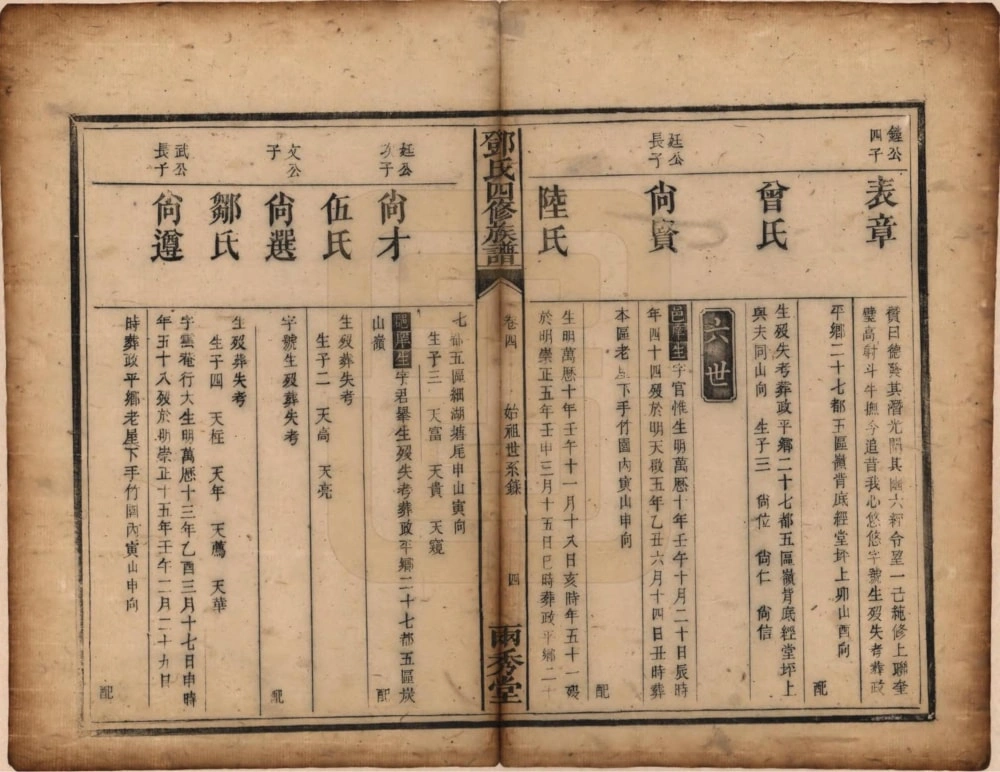 鏜公
四子
表章
贊曰德發其潛光閘其幽六經合望一己範修上聯奎
璧高射斗牛撫今追昔我心悠悠字號生歿失考葬政
平鄉二十七都五區嶺背底經堂坪上卯山酉向
配
曾氏
生歿失考葬政平鄉二十七都五區嶺背底經堂坪上
與夫同山向 生子三 尙位 尙仁 尙信
六世
廷公
長子
尙賓
邑庠生字官惟生明萬歷十年壬午十月二十日辰時
年四十四歿於明天啟五年乙丑六月十四日丑時葬
本區老屋下手竹園內寅山申向
配
陸氏
生明萬歷十年壬午十一月十八日亥時年五十一歿
於明崇正五年壬申三月十五日巳時葬政平鄉二十
鄧氏四修族譜
卷四
始祖世系錄
四
兩秀堂
七都五區細湖塘尾申山寅向
生子三 天富 天貴 天寵
廷公
次子
尙才
邑庠生字君舉生歿失考葬政平鄉二十七都五區炭
山嶺
配
伍氏
生歿葬失考
生子二 天高 天亮
文公
子
尙選
字號生歿葬失考
配
鄒氏
生歿葬失考
生子四 天柾 天年 天薦 天華
武公
長子
尙遵
字雲菴行大生明萬歷十三年乙酉三月十七日申時
年五十八歿於明崇正十五年壬午二月二十九日
時葬政平鄉老屋下手竹園內寅山申向
配